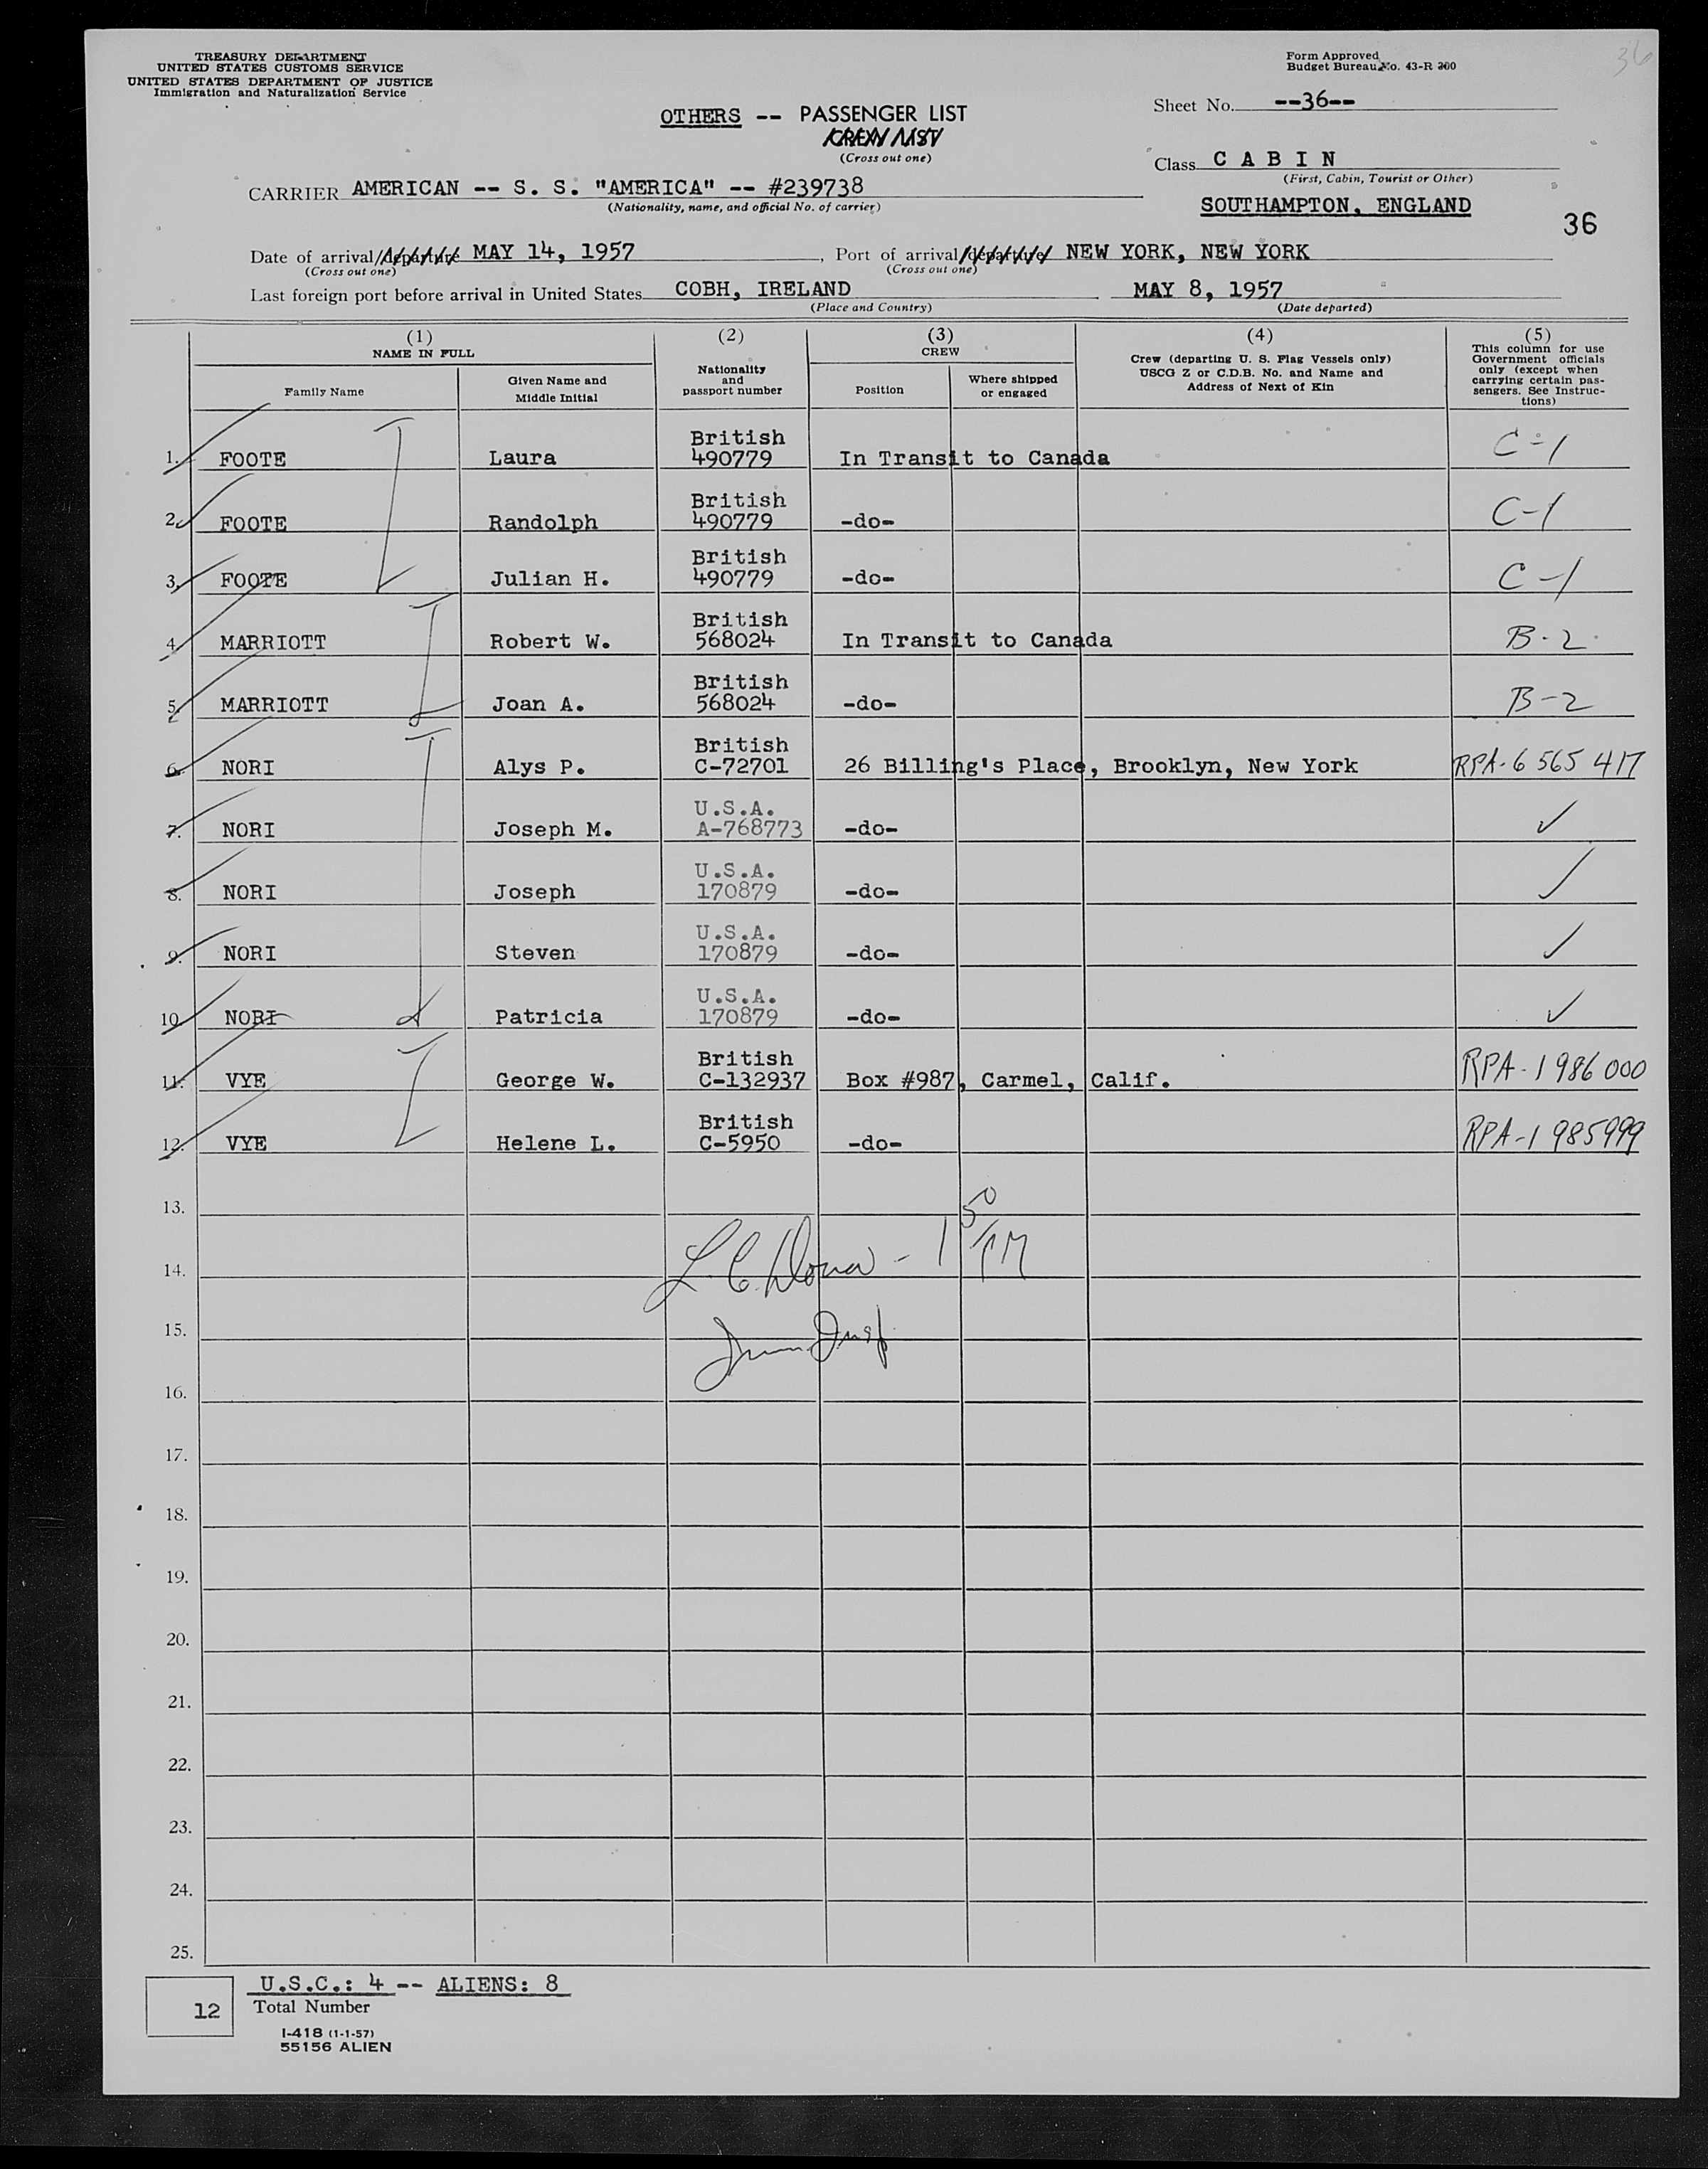 TREASURY DEPARTMENT
UNITED STATES CUSTOMS SERVICE
UNITED STATES DEPARTMENT OF JUSTICE
Immigration and Naturalization Service
Form Approved
Budget Bureau No. 43-R 200
36
Sheet No. --36--
OTHERS -- PASSENGER LIST
CREW LIST
(Cross out one)
Class C A B I N
(First, Cabin, Tourist or Other)
CARRIER AMERICAN -- S. S. "AMERICA" -- #239738
(Nationality, name, and official No. of carrier)
SOUTHAMPTON, ENGLAND
36
Date of arrival/departure MAY 14, 1957, Port of arrival/departure NEW YORK, NEW YORK
(Cross out one) (Cross out one)
Last foreign port before arrival in United States COBH, IRELAND MAY 8, 1957
(Place and Country) (Date departed)
(1) (2) (3) (4) (5)
NAME IN FULL
Family Name
Given Name and
Middle Initial
Nationality
and
passport number
CREW
Position
Where shipped
or engaged
Crew (departing U. S. Flag Vessels only)
USCG Z or C.D.B. No. and Name and
Address of Next of Kin
This column for use
Government officials
only (except when
carrying certain pas-
sengers. See Instruc-
tions)
British
1. FOOTE Laura 490779 In Transit to Canada C-1
British
2. FOOTE Randolph 490779 -do- C-1
British
3. FOOTE Julian H. 490779 -do- C-1
British
4. MARRIOTT Robert W. 568024 In Transit to Canada B-2
British
5. MARRIOTT Joan A. 568024 -do- B-2
British
6. NORI Alys P. C-72701 26 Billing's Place, Brooklyn, New York RPA-6 565 417
U.S.A.
7. NORI Joseph M. A-768773 -do- ✓
U.S.A.
8. NORI Joseph 170879 -do- ✓
U.S.A.
9. NORI Steven 170879 -do- ✓
U.S.A.
10. NORI Patricia 170879 -do- ✓
British
11. VYE George W. C-132937 Box #987, Carmel, Calif. RPA-1 986 000
British
12. VYE Helene L. C-5950 -do- RPA-1 985999
13.
14. L. C. - 1 50 PM
15.
16.
17.
18.
19.
20.
21.
22.
23.
24.
25.
U.S.C.: 4 -- ALIENS: 8
12 Total Number
I-418 (1-1-57)
55156 ALIEN